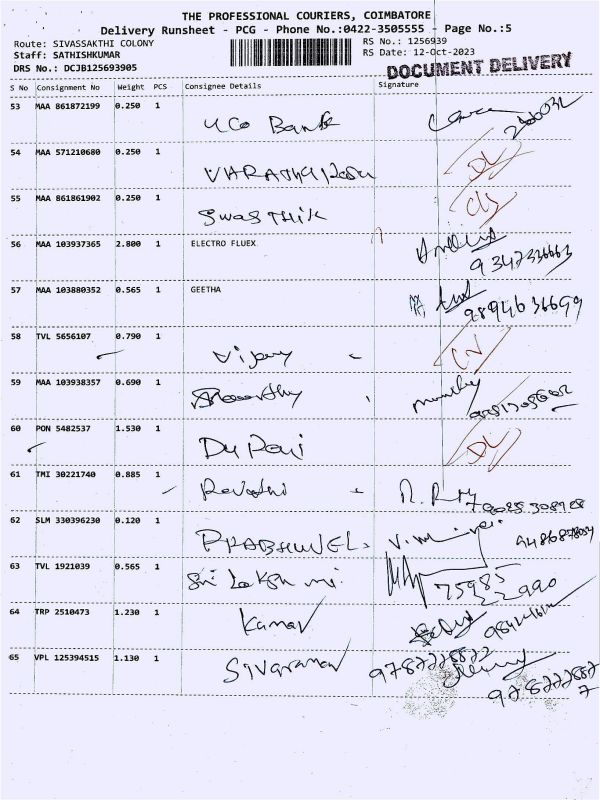 THE PROFESSIONAL COURIERS, COIMBATORE
Delivery Runsheet - PCG - Phone No.:0422-3505555 - Page No.:5
Route: SIVASSAKTHI COLONY
RS No.: 1256939
Staff: SATHISHKUMAR
RS Date: 12-Oct-2023
DRS No.: DCJB125693905
DOCUMENT DELIVERY
S No Consignment No Weight PCS Consignee Details Signature
53 MAA 861872199 0.250 1 UCO Bank
54 MAA 571210680 0.250 1 DL
55 MAA 861861902 0.250 1 Swasthik
56 MAA 103937365 2.800 1 ELECTRO FLUEX
9347336663
57 MAA 103880352 0.565 1 GEETHA
9894636699
58 TVL 5656107 0.790 1 Vijay
59 MAA 103938357 0.690 1
60 PON 5482537 1.530 1 DL
61 TMI 30221740 0.885 1 Revathi
62 SLM 330396230 0.120 1 PRABHUVEL.
63 TVL 1921039 0.565 1 Sri Lakshmi.
75985
22990
64 TRP 2510473 1.230 1 Kumar
65 VPL 125394515 1.130 1 Sivaraman